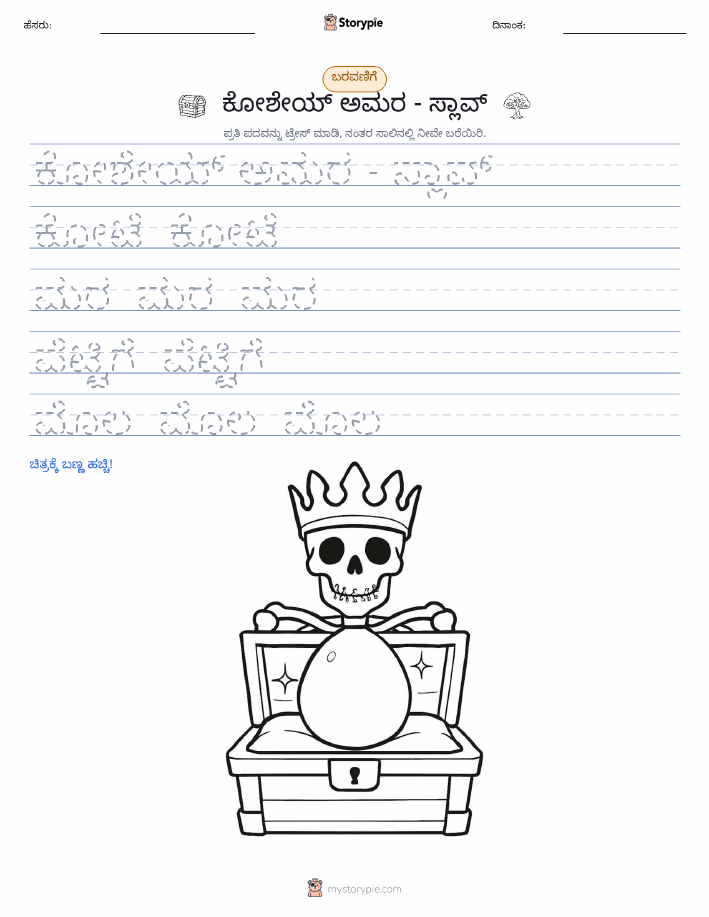 ಹೆಸರು: Storypie ದಿನಾಂಕ:
ಬರವಣಿಗೆ
ಕೋಶೇಯ್ ಅಮರ - ಸ್ಲಾವ್
ಪ್ರತಿ ಪದವನ್ನು ಟ್ರೇಸ್ ಮಾಡಿ, ನಂತರ ಸಾಲಿನಲ್ಲಿ ನೀವೇ ಬರೆಯಿರಿ.
ಕೋಶೇಯ್ ಅಮರ - ಸ್ಲಾವ್
ಕೋಟೆ ಕೋಟೆ
ಮರ ಮರ ಮರ
ಪೆಟ್ಟಿಗೆ ಪೆಟ್ಟಿಗೆ
ಮೊಲ ಮೊಲ ಮೊಲ
ಚಿತ್ರಕ್ಕೆ ಬಣ್ಣ ಹಚ್ಚಿ!
mystorypie.com